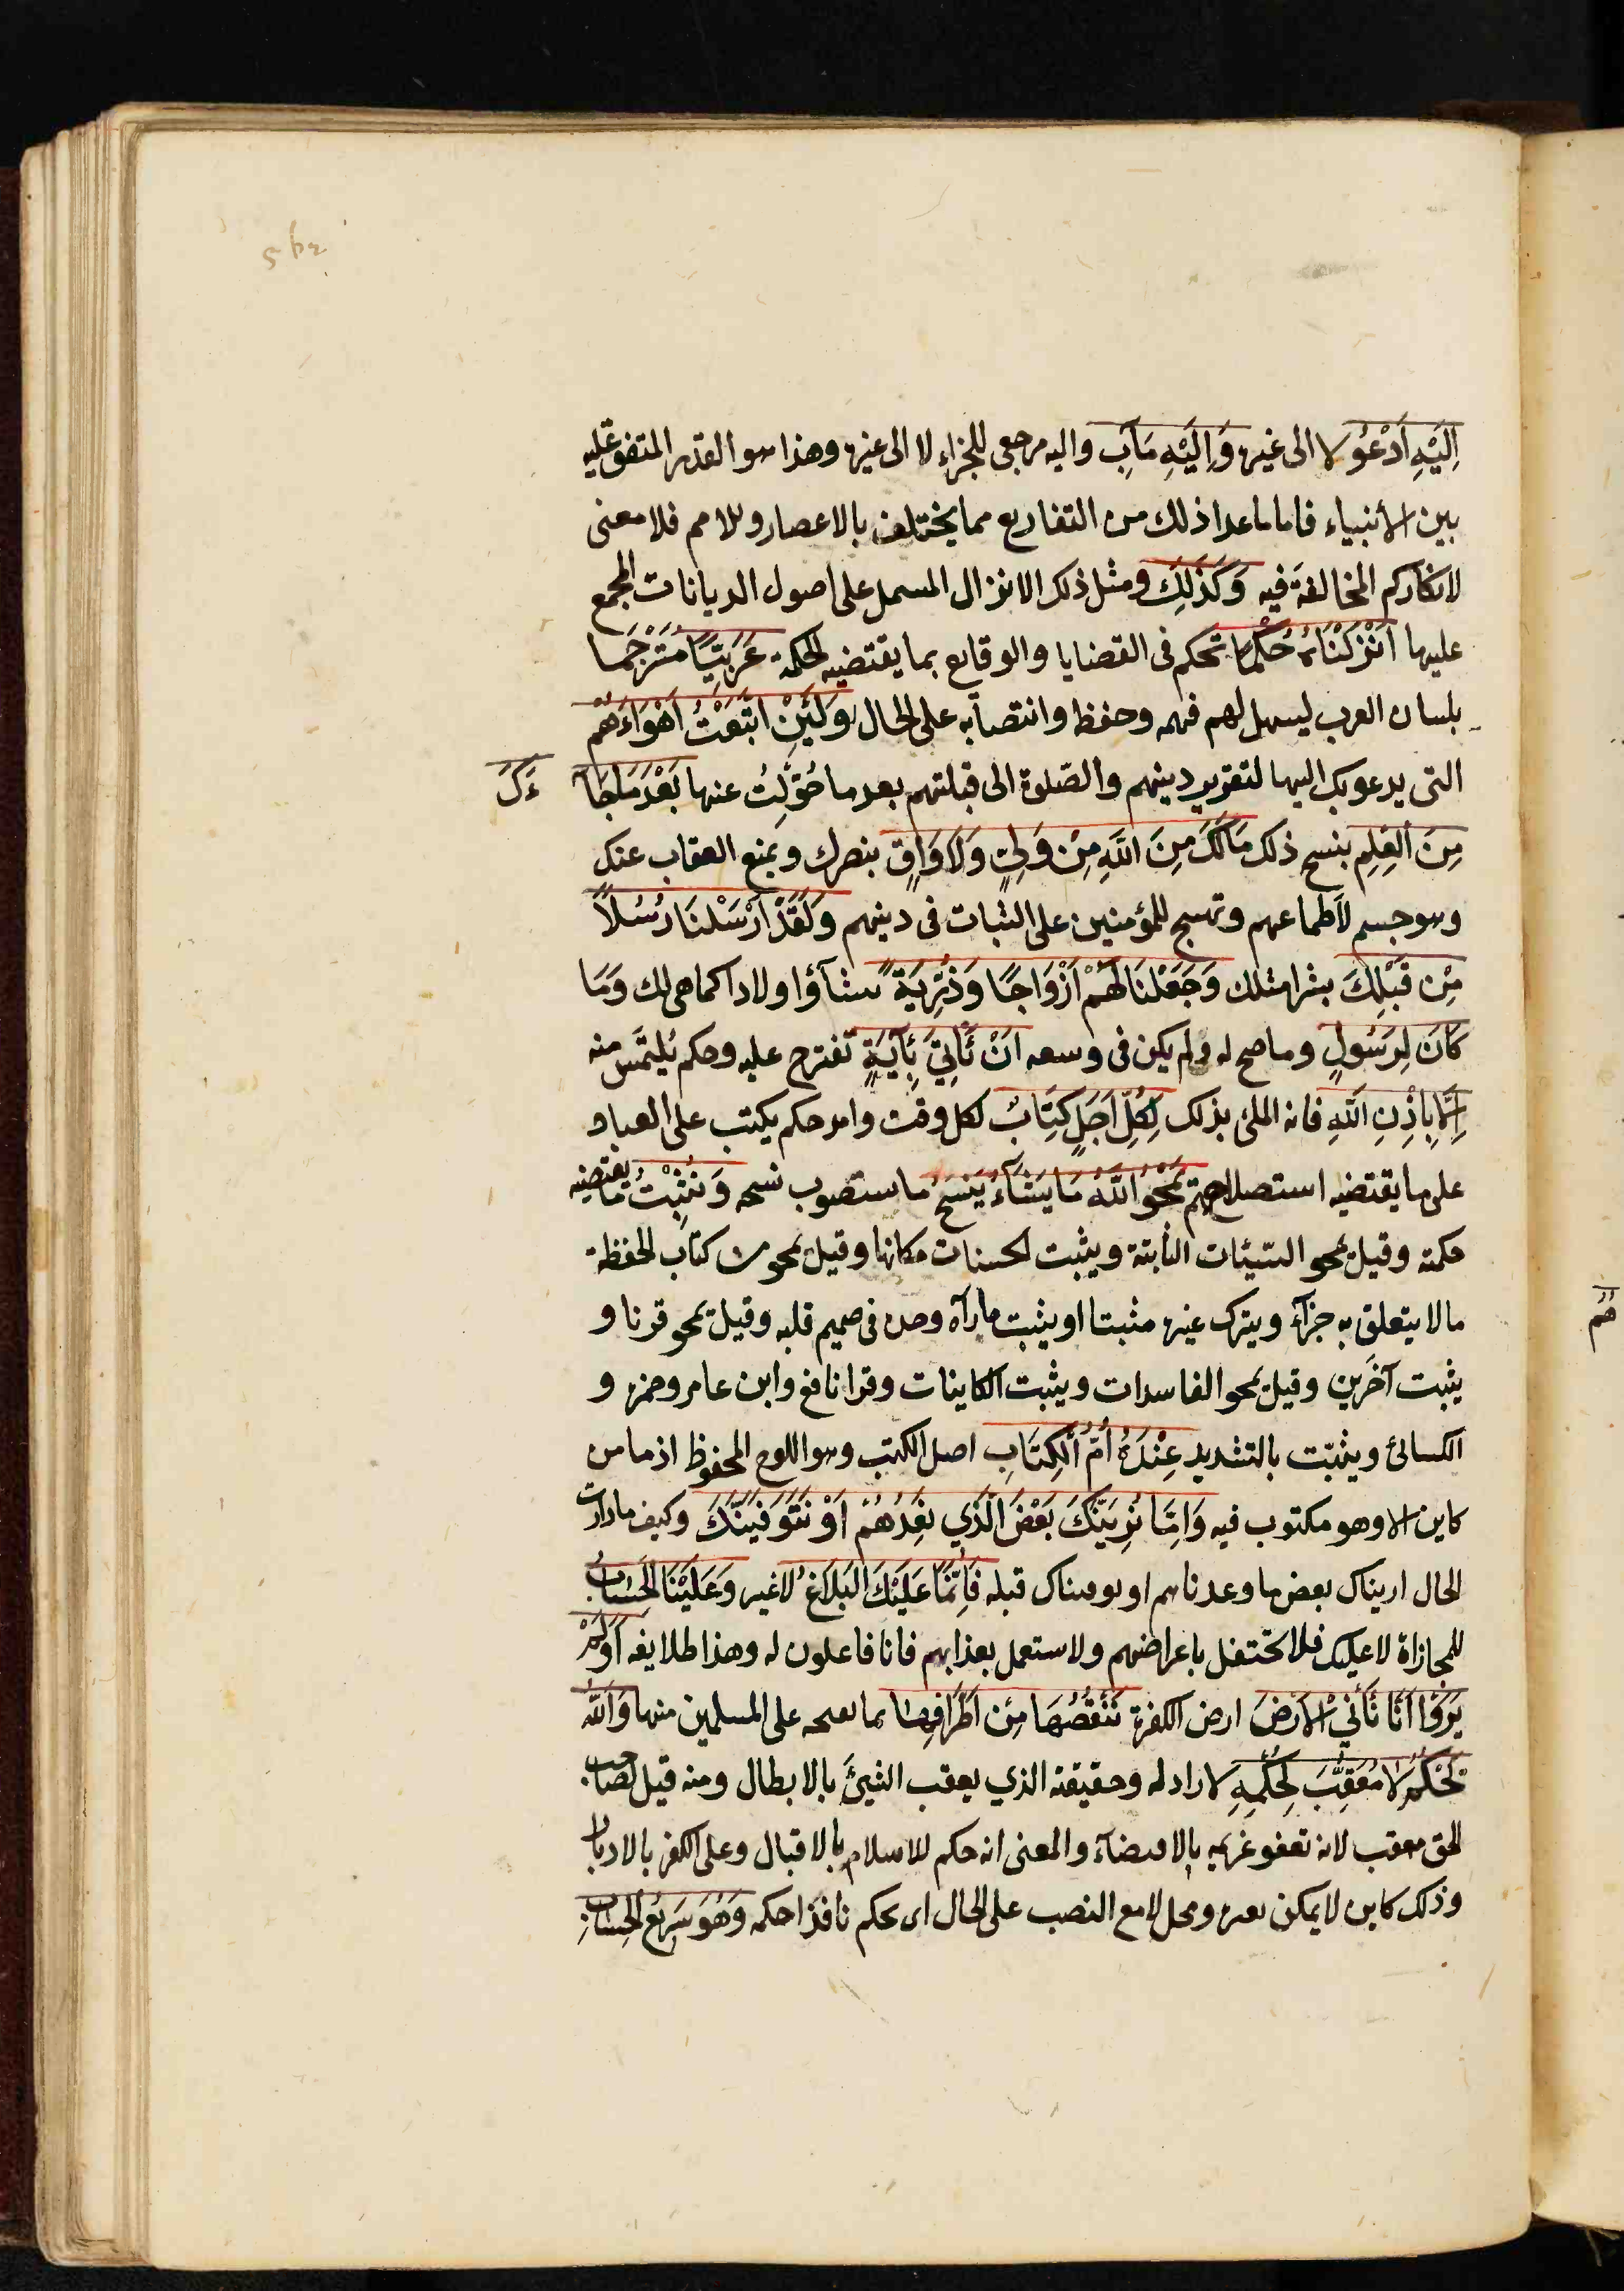 اِلَيْهِ اَدْعُو لا الى غيره وَاِلَيْهِ مَآبِ واليه مرجعى للجزاء لا الى غيره وهذا هو القدر المتفق عليه
بين الأنبياء فاما ما عدا ذلك من التفاريع مما يختلف بالاعصار والامم فلا معنى
لانكاركم المخالفة فيه وَكَذَلِكَ ومثل ذلك الانزال المسمل على اصول الديانات المجمع
عليها اَنْزَلْنَاهُ حُكْمًا تحكم فى القضايا والوقايع بما يقتضيه الحكمة عَرَبِيًّا مُتَرْجَمًا
بلسان العرب ليسهل لهم فهمه وحفظه وانتصابه على الحال وَلَئِنْ اتَّبَعْتَ اَهْوَاءَهُمْ
التى يدعونك اليها لتقرير دينهم والصّلوة الى قبلتهم بعد ما حُوِّلتَ عنها بَعْدَ مَا جَآ ءَكَ
مِنَ الْعِلْمِ بنسخ ذلك مَالَكَ مِنَ اللَّهِ مِنْ وَلِيٍّ وَلَا وَاقٍ ينصرك ويمنع العقاب عنك
وهو حسم لأطماعهم وتهسج للمؤمنين على الثبات فى دينهم وَلَقَدْ اَرْسَلْنَا رُسُلًا
مِنْ قَبْلِكَ بشرا مثلك وَجَعَلْنَا لَهُمْ اَزْوَاجًا وَذُرِّيَةً نسآؤا واولادا كما هى لك وَمَا
كَانَ لِرَسُولٍ وما صح له ولم يكن فى وسعه اَنْ يَأْتِيَ بِآيَةٍ تقترح عليه وحكم يُلتمَس منه
اِلَّا بِاِذْنِ اللَّهِ فانه الملئ بذلك لِكُلِّ اَجَلٍ كِتَابٌ لكل وقت وامد حكم يكتب على العباد
على ما يقتضيه استصلاحهم يَمْحُو اللَّهُ مَا يَشَآءُ يَنسَخُ ما ستصوب نسخه وَيُثْبِتُ ما يقتضيه
حكمته وقيل يمحو السّيئات التائبة ويثبت الحسنات مكانها وقيل يمحو من كتاب الحفظة
ما لا يتعلق به جزآء ويترك غيره مثبتا او يثبت ما رآه وحده فى صميم قلبه وقيل يمحو قرنا و
يثبت آخَرين وقيل يمحو الفاسدات ويثبت الكاينات وقرا نافع وابن عامر وحمزه و
الكسائى ويثبّت بالتشديد عِنْدَهُ اُمُّ الْكِتَابِ اصل الكتب وهو اللوح المحفوظ اذ ما من
كاين الا وهو مكتوب فيه وَاِمَّا نُرِيَنَّكَ بَعْضَ الَّذِي نَعِدُهُمْ اَوْ نَتَوَفَّيَنَّكَ وكيف ما دارت
الحال اريناك بعض ما وعدناهم او توفيناك قبله فَاِنَّمَا عَلَيْكَ الْبَلَاغُ لا غير وَعَلَيْنَا الْحِسَابُ
للمجازاة لا عليك فلا تحتفل باعراضهم ولا ستعجل بعذابهم فانا فاعلون له وهذا طلايعه اَوَلَمْ
يَرَوْا اَنَّا نَأْتِي الْاَرْضَ ارض الكفرة نَنْقُصُهَا مِنْ اَطْرَافِهَا بما نفتحه على المسلمين منها وَاللَّهُ
يَحْكُمُ لَا مُعَقِّبَ لِحُكْمِهِ لا راد له وحقيقته الذي يعقب الشيئ بالابطال ومنه قيل لصاحب
الحق معقب لانه تعفو غريمه بالاقتضآء والمعنى انه حكم للاسلام بالاقبال وعلى الكفر بالادبار
وذلك كاين لا يمكن تغيره ومحل لا مع النصب على الحال اى يحكم نافذا حكمه وَهُوَ سَرِيعُ الْحِسَابِ
هُمْ